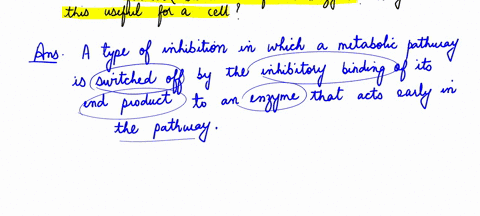 this useful for a cell?
Ans. A type of inhibition in which a metabolic pathway
is switched off by the inhibitory binding of its
end product to an enzyme that acts early in
the pathway.